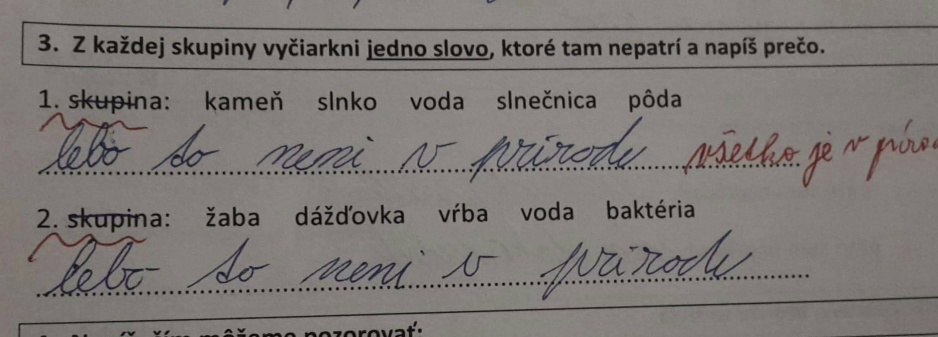 3. Z každej skupiny vyčiarkni jedno slovo, ktoré tam nepatrí a napíš prečo.
1. skupina: kameň slnko voda slnečnica pôda
lebo to neni v prírode všetko je v príro
2. skupina: žaba dážďovka vŕba voda baktéria
lebo to neni v prírode
môžeme pozorovať: